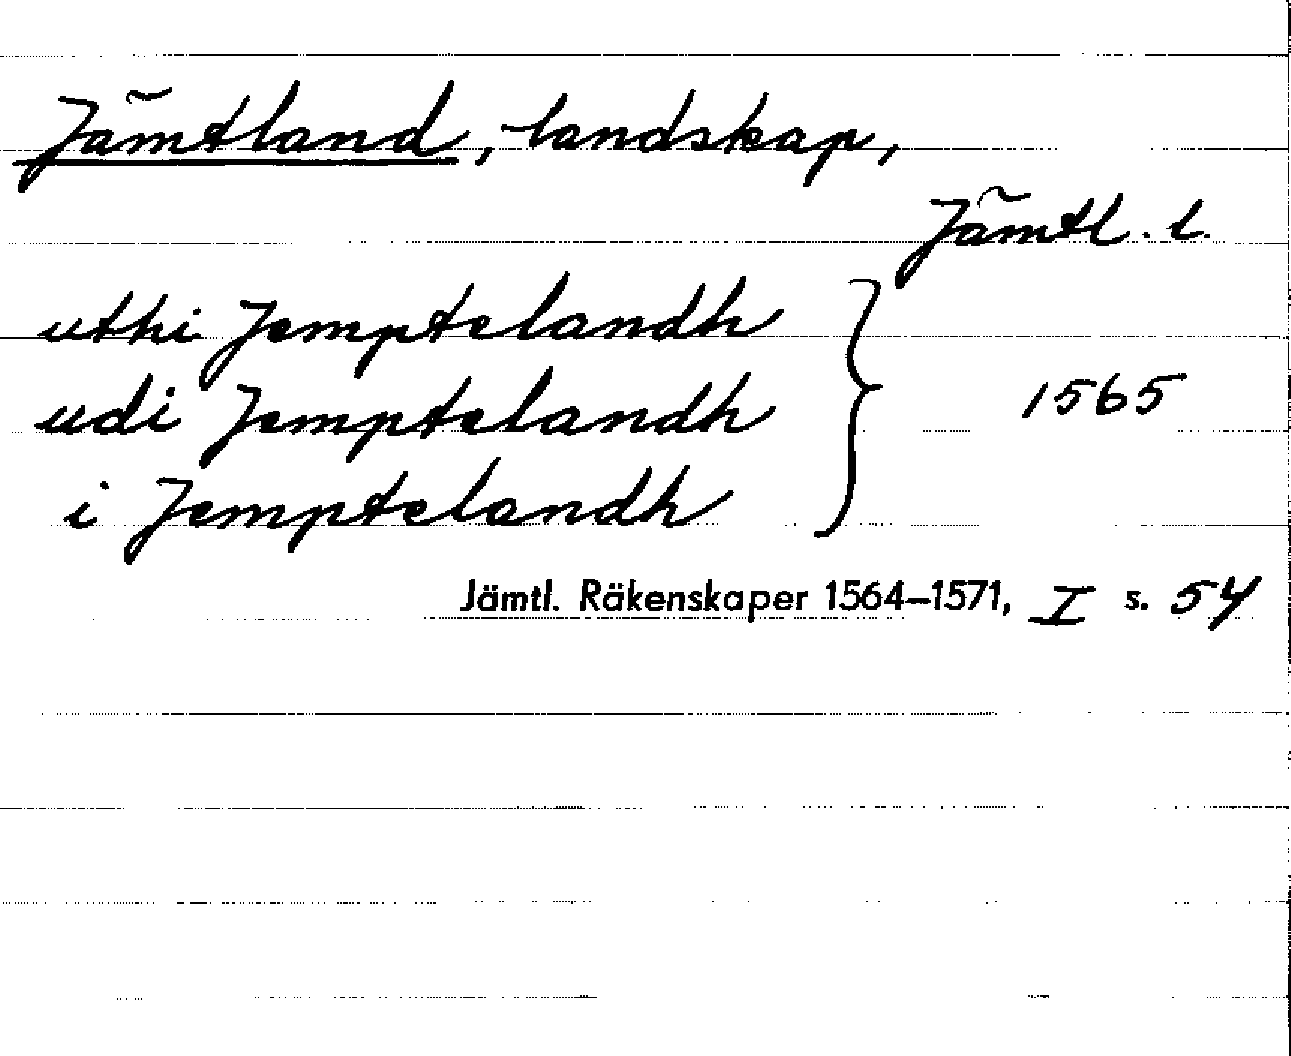 Jämtland, landskap,
Jämtl. l.
uthi Jemptelandh
udi Jemptelandh } 1565
i Jemptelandh
Jämtl. Räkenskaper 1564–1571, I s. 54